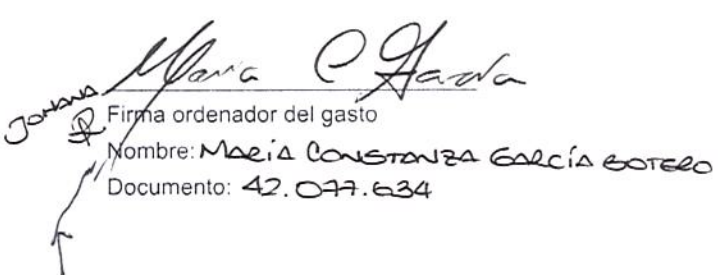 Maria C Garcia
JOHANA
Firma ordenador del gasto
Nombre: MARÍA CONSTANZA GARCÍA BOTERO
Documento: 42.077.634